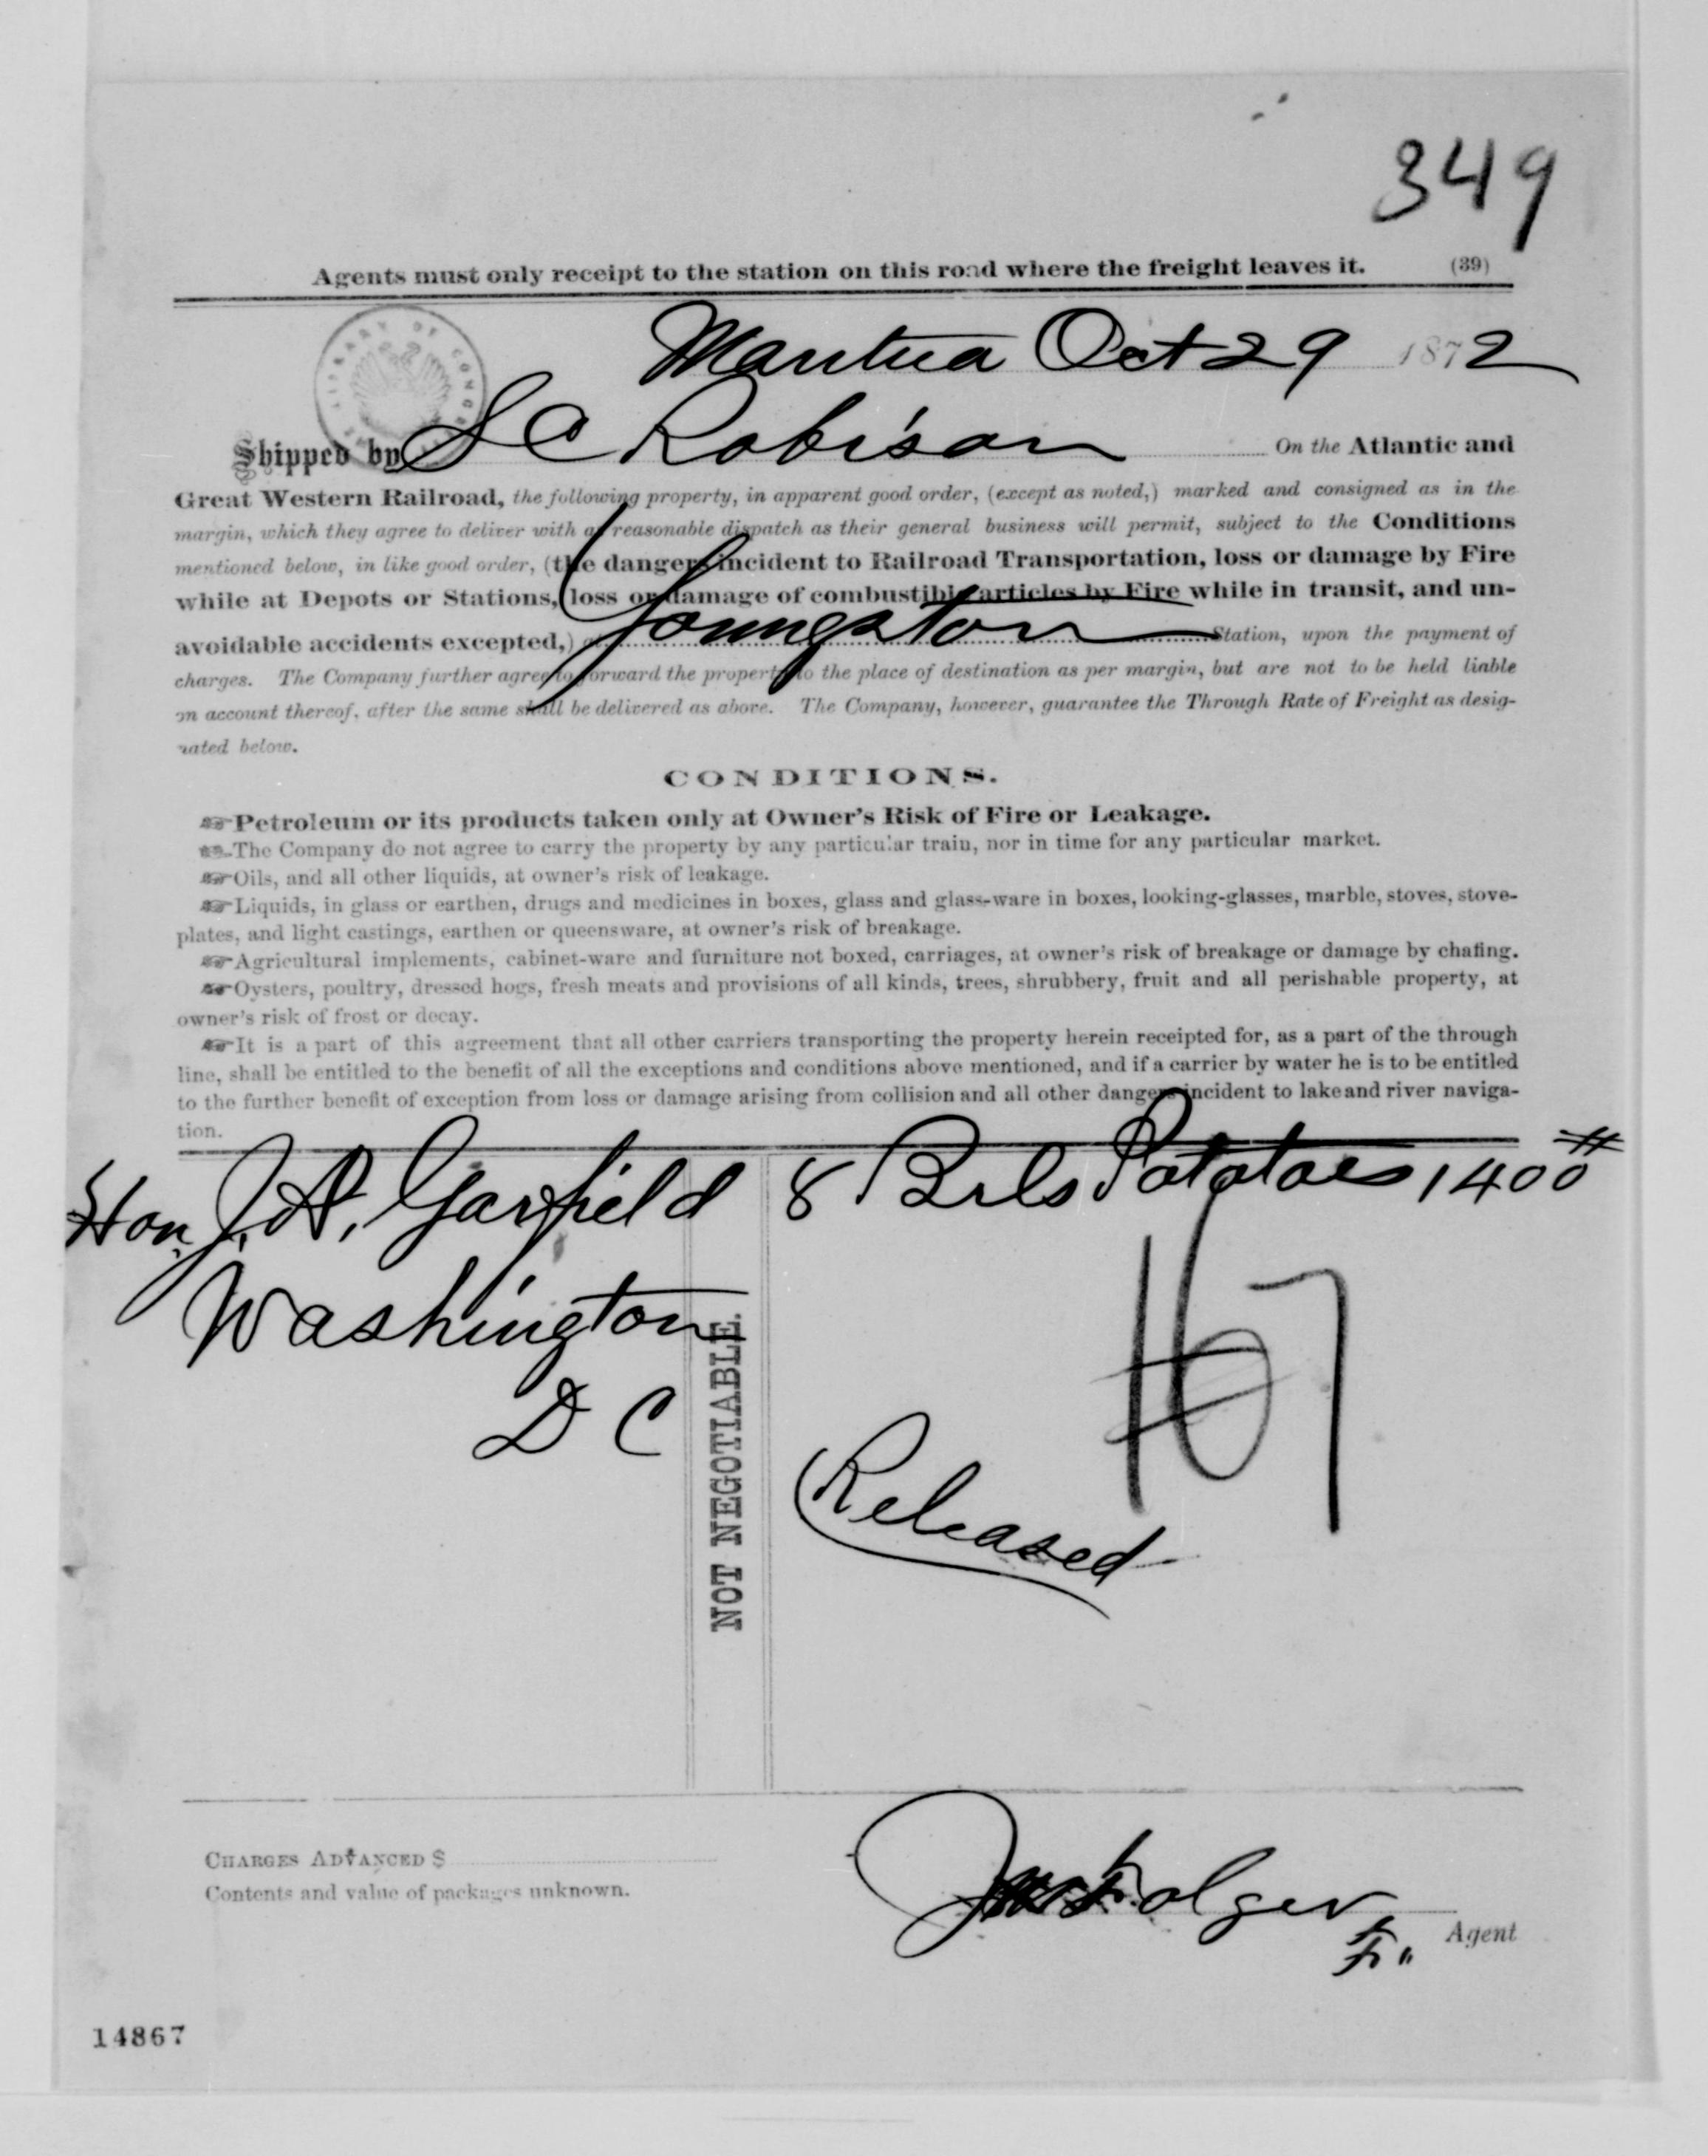 349
Agents must only receipt to the station on this road where the freight leaves it. (39)
Mantua Oct 29 1872
LIBRARY OF CONGRESS
Shipped by S C Robison On the Atlantic and
Great Western Railroad, the following property, in apparent good order, (except as noted,) marked and consigned as in the
margin, which they agree to deliver with as reasonable dispatch as their general business will permit, subject to the Conditions
mentioned below, in like good order, (the dangers incident to Railroad Transportation, loss or damage by Fire
while at Depots or Stations, loss or damage of combustible articles by Fire while in transit, and un-
avoidable accidents excepted,) at Youngston Station, upon the payment of
charges. The Company further agree to forward the property to the place of destination as per margin, but are not to be held liable
on account thereof, after the same shall be delivered as above. The Company, however, guarantee the Through Rate of Freight as desig-
nated below.
CONDITIONS.
Petroleum or its products taken only at Owner's Risk of Fire or Leakage.
The Company do not agree to carry the property by any particular train, nor in time for any particular market.
Oils, and all other liquids, at owner's risk of leakage.
Liquids, in glass or earthen, drugs and medicines in boxes, glass and glass-ware in boxes, looking-glasses, marble, stoves, stove-
plates, and light castings, earthen or queensware, at owner's risk of breakage.
Agricultural implements, cabinet-ware and furniture not boxed, carriages, at owner's risk of breakage or damage by chafing.
Oysters, poultry, dressed hogs, fresh meats and provisions of all kinds, trees, shrubbery, fruit and all perishable property, at
owner's risk of frost or decay.
It is a part of this agreement that all other carriers transporting the property herein receipted for, as a part of the through
line, shall be entitled to the benefit of all the exceptions and conditions above mentioned, and if a carrier by water he is to be entitled
to the further benefit of exception from loss or damage arising from collision and all other dangers incident to lake and river naviga-
tion.
Hon. J. A. Garfield 8 Brls Potatoes 1400 #
Washington
D C
NOT NEGOTIABLE.
Released
CHARGES ADVANCED $
Contents and value of packages unknown.
Folger
Agent
14867